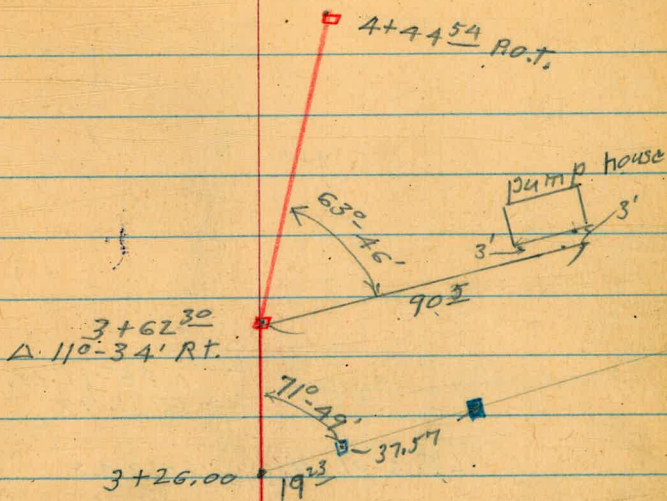 4+44 54
P.O.T.
pump house
63°-46'
3'
3'
90 5
3+62 30
Δ 11°-34' Rt.
71°-49'
37.57
3+26.00
19 23